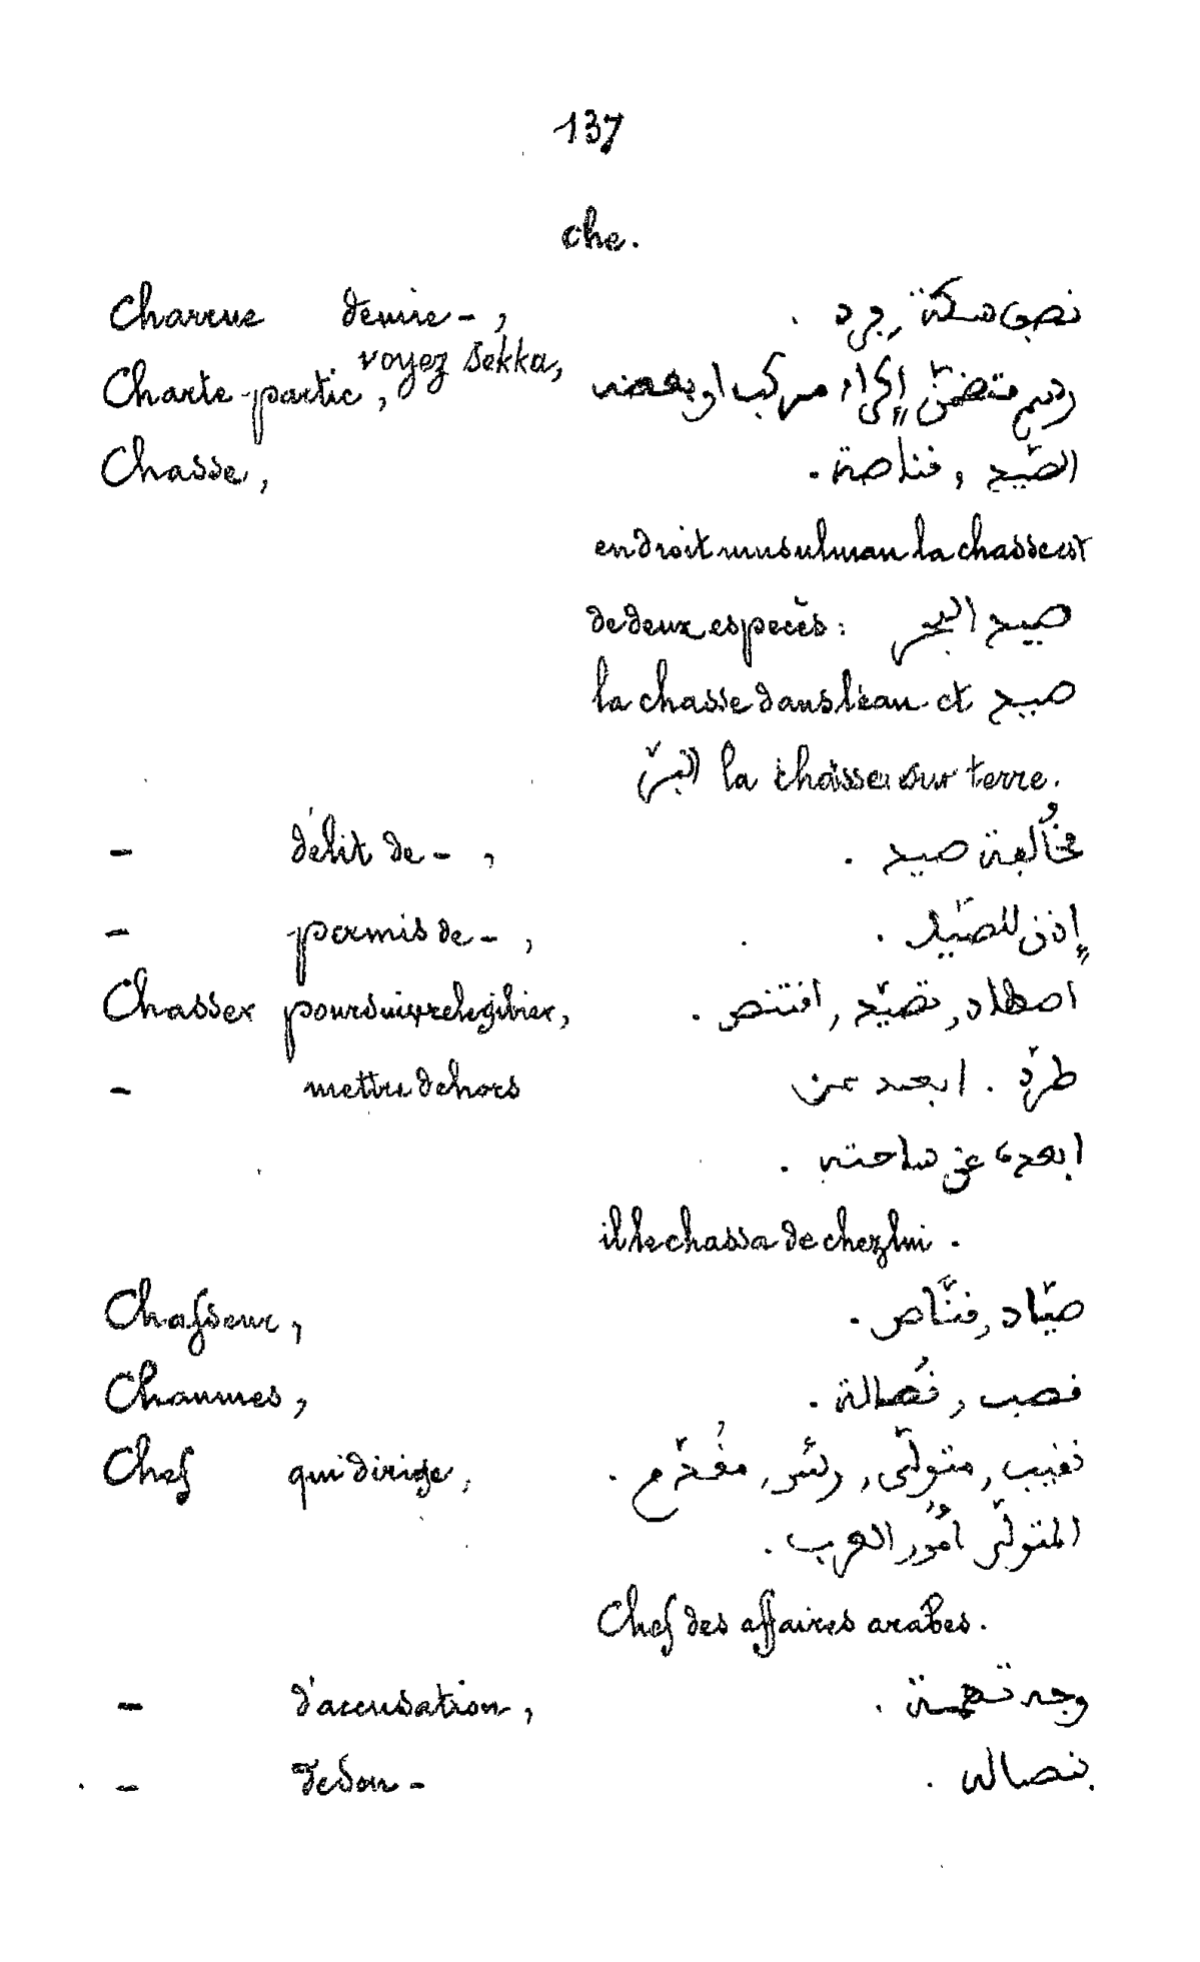 137
che.
Charrue demie -, نصف سكة, جرد .
voyez sekka,
Charte-partie, رسم متضمّن إكراء مركب او بعضه
Chasse, الصّيد, فناصة .
en droit musulman la chasse est
de deux espèces : صيد البحر
la chasse dans l'eau et صيد
البرّ la chasse sur terre.
- délit de -, مخالفة صيد .
- permis de -, إذن للصّيد .
Chasser poursuivre le gibier, اصطاد, تصيّد, اقتنص .
- mettre dehors طرّد . ابعد عن
ابعده عن ساحته .
il le chassa de chez lui .
Chasseur, صيّاد, قنّاص .
Chaumes, قصب, فُصالة .
Chef qui dirige, نقيب, متولّى, رئس, مقُدّم .
المتولّى امُور العرب .
Chef des affaires arabes.
- d'accusation, وجه تهمة .
- de son - بنصاله .